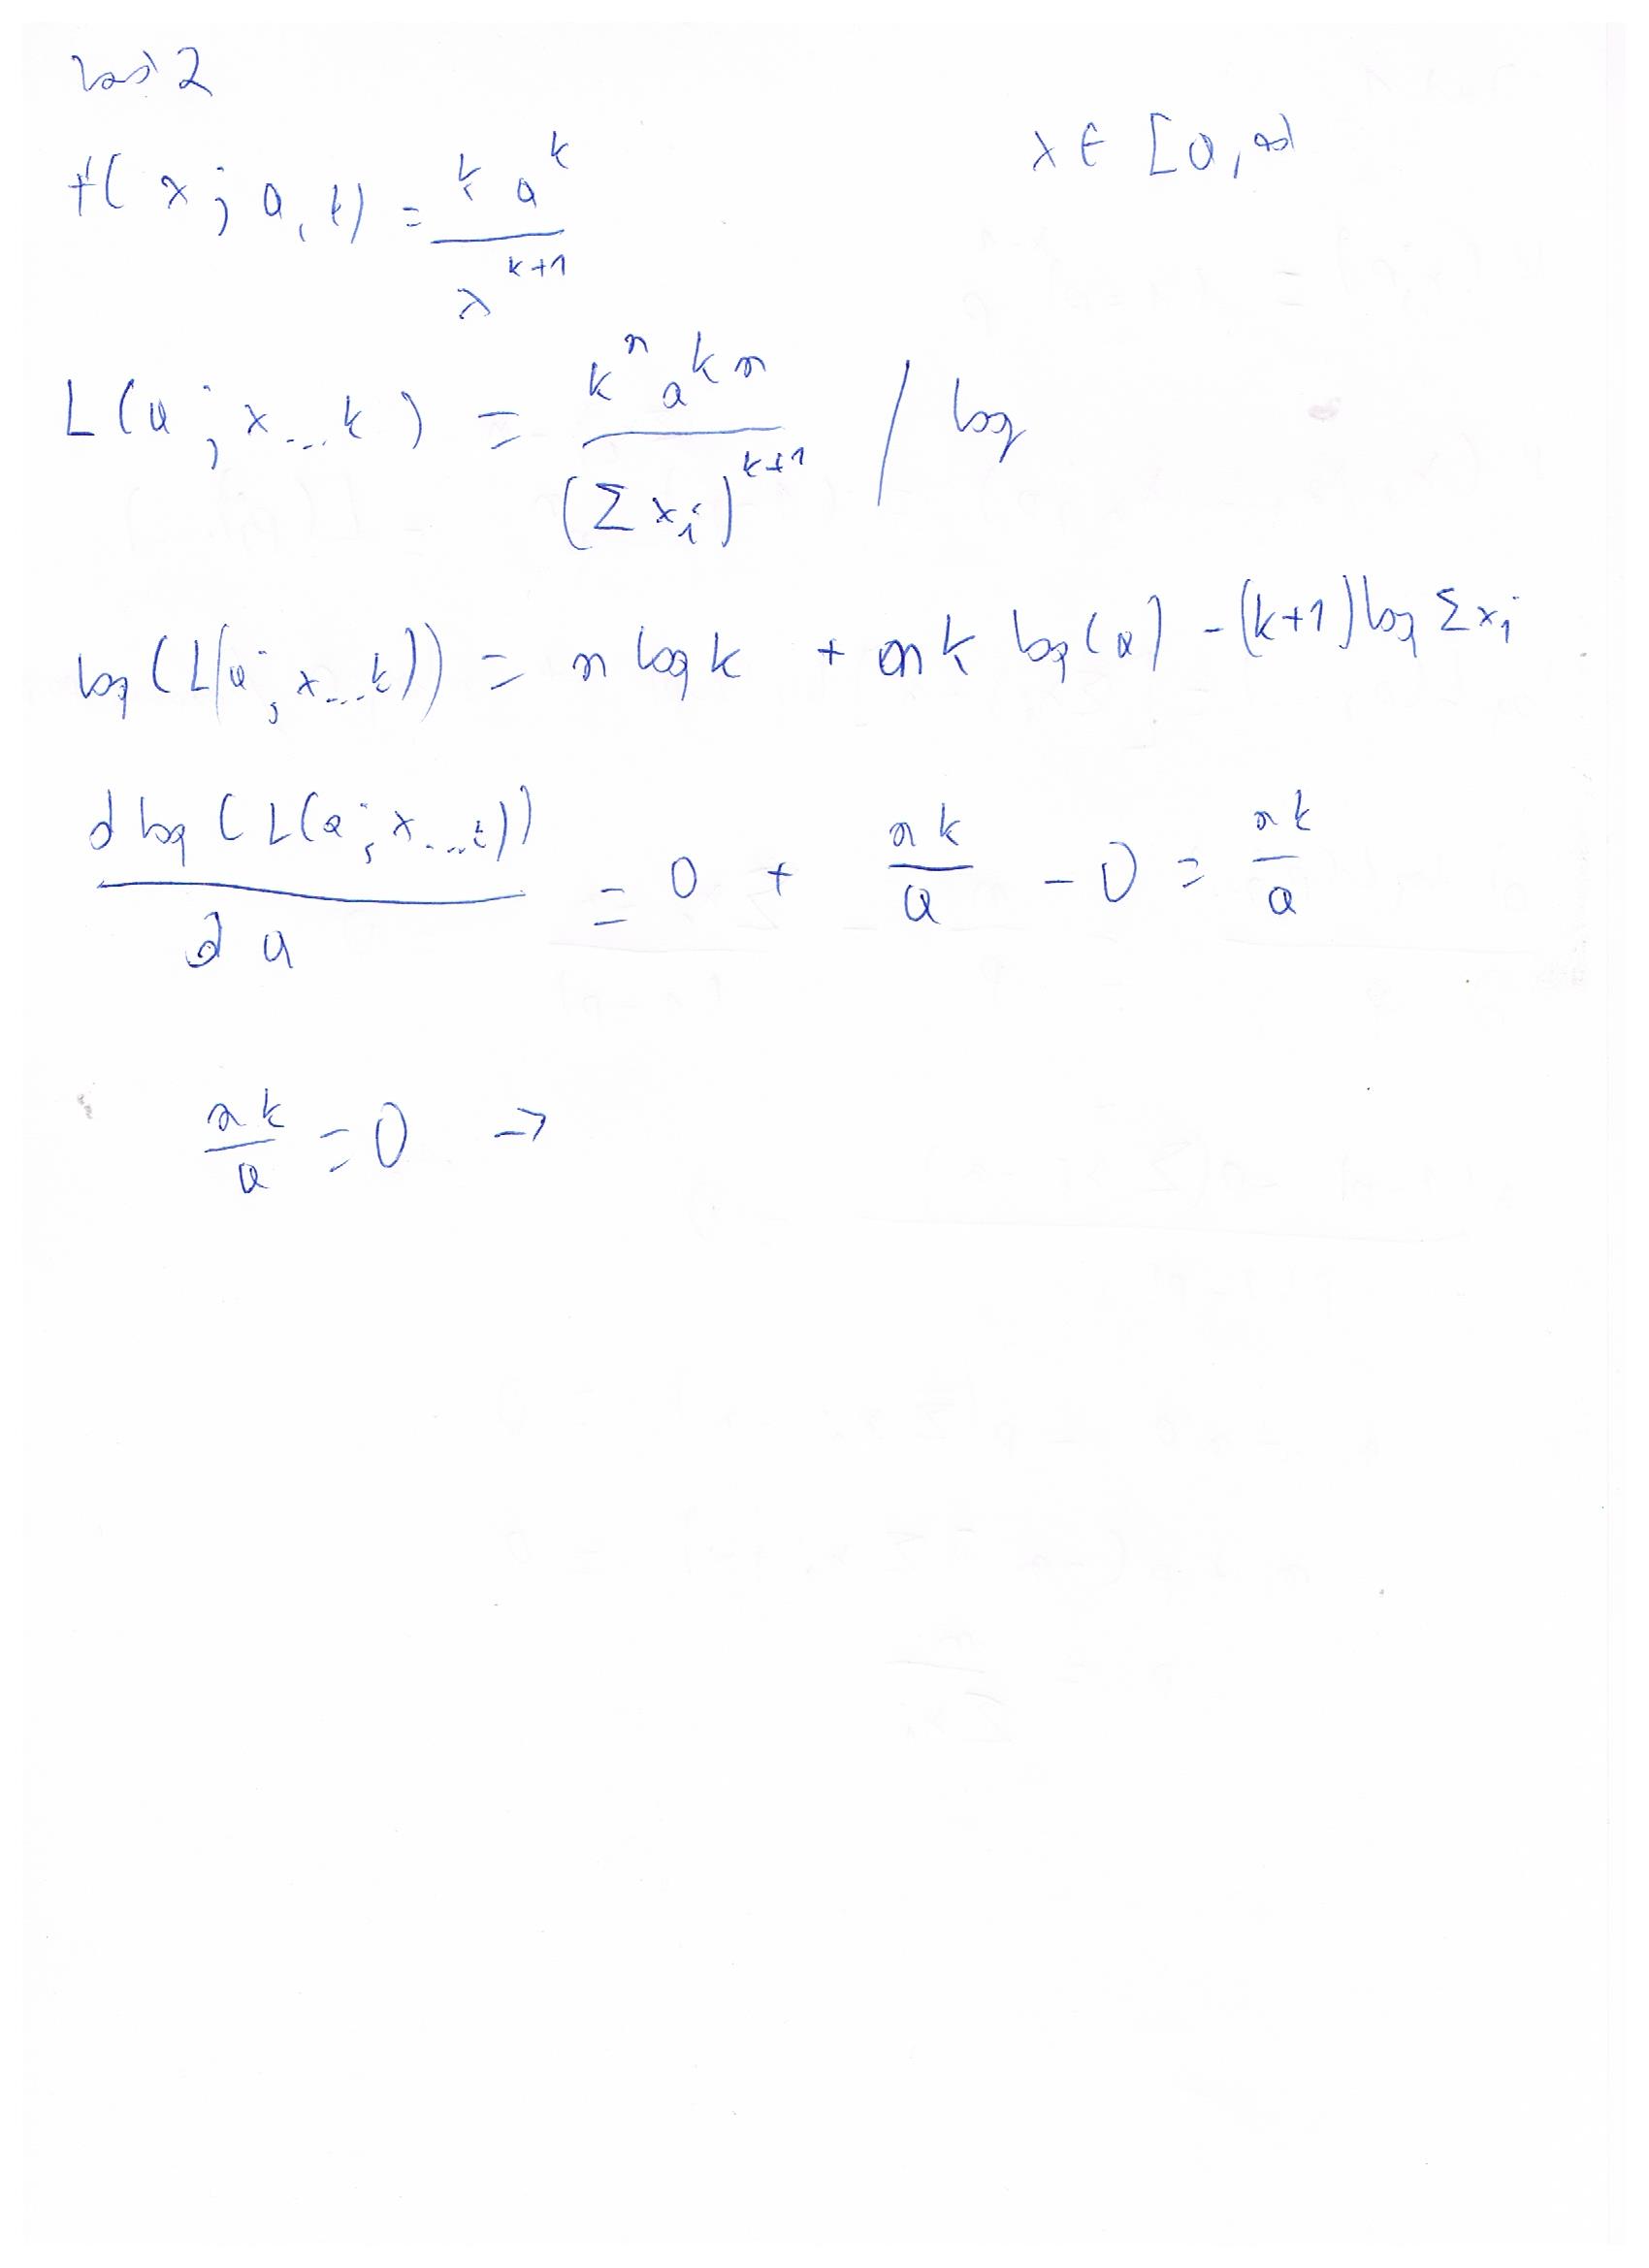 zad 2
f(x; a, k) = \frac{k a^k}{x^{k+1}} x ∈ [a, ∞)
L(a; x...k) = \frac{k^n a^{kn}}{(Σ x_i)^{k+1}} / log
log(L(a; x...k)) = n log k + nk log(a) - (k+1) log Σ x_i
\frac{∂ log(L(a; x...k))}{∂ a} = 0 + \frac{nk}{a} - 0 = \frac{nk}{a}
\frac{nk}{a} = 0 →